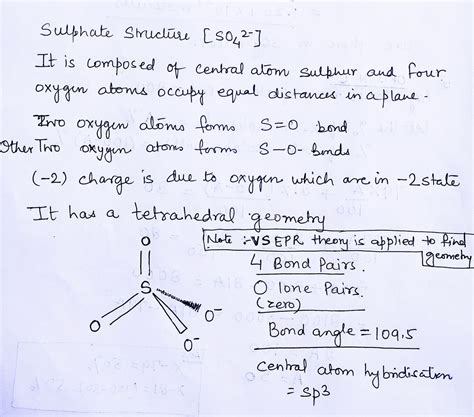 Sulphate Structure [SO₄²⁻]
It is composed of central atom sulphur and four
oxygen atoms occupy equal distances in a plane.
Two oxygen atoms forms S=O bond
Other Two oxygen atoms forms S-O- bonds
(-2) charge is due to oxygen which are in -2 state
It has a tetrahedral geometry
Note :- VSEPR theory is applied to find
geometry
O
S
O
O⁻
O⁻
4 Bond Pairs.
0 lone Pairs.
(zero)
Bond angle = 109.5
central atom hybridisation
= sp3